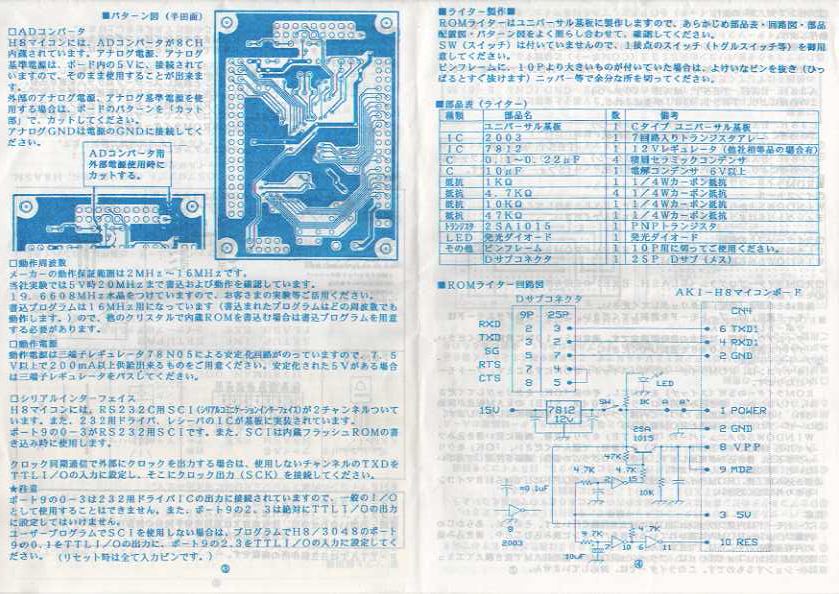 ■パターン図(半田面)
□ADコンバータ
H8マイコンには、ADコンバータが8CH
内蔵されています。アナログ電源、アナログ
基準電源は、ボード内の5Vに、接続されて
いますので、そのまま使用することが出来ま
す。
外部のアナログ電源、アナログ基準電源を使
用する場合は、ボードのパターンを「カット
部」で、カットしてください。
アナログGNDは電源のGNDに接続してく
ださい。
ADコンバータ用
外部電源使用時に
カットする。
□動作周波数
メーカーの動作保証範囲は2MHz～16MHzです。
当社実験では5V時20MHzまで書込および動作を確認しています。
19.6608MHz水晶をつけていますので、お客さまの実験等ご活用ください。
書込プログラムは16MHz用になっています(書込まれたプログラムはどの周波数でも
動作します。)ので、他のクリスタルで内蔵ROMを書込む場合は書込プログラムを用意
する必要があります。
□動作電源
動作電源は三端子レギュレータ78N05による安定化回路がのっていますので、7.5
V以上で200mA以上供給出来るものをご用意ください。安定化された5Vがある場合
は三端子レギュレータをパスしてください。
□シリアルインターフェイス
H8マイコンには、RS232C用SCI(シリアルコミニケーションインターフェイス)が2チャンネルついて
います。また、232用ドライバ、レシーバのICが基板に実装されています。
ポート9の0-3がRS232用SCIです。また、SCIは内蔵フラッシュROMの書
き込み時に使用します。
クロック同期通信で外部にクロックを出力する場合は、使用しないチャンネルのTXDを
TTLI/Oの入力に設定し、そこにクロック出力(SCK)を接続してください。
★注意
ポート9の0-3は232用ドライバICの出力に接続されていますので、一般のI/O
として使用することはできません。また、ポート9の2、3は絶対にTTLI/Oの出力
に設定してはいけません。
ユーザープログラムでSCIを使用しない場合は、プログラムでH8/3048のポート
9の0.1をTTLI/Oの出力に、ポート9の2.3をTTLI/Oの入力に設定してく
ださい。(リセット時は全て入力ピンです。)
③
■ライター製作■
ROMライターはユニバーサル基板に製作しますので、あらかじめ部品表・回路図・部品
配置図・パターン図をよく照らし合わせて、確認してください。
SW(スイッチ)は付いていませんので、1接点のスイッチ(トグルスイッチ等)を御用
意してください。
ピンフレームに、10Pより大きいものが付いていた場合は、よけいなピンを抜き(ひっ
ぱるとすぐ抜けます)ニッパー等で余分な所を切ってください。
■部品表(ライター)
種類 部品名 数 備考
ユニバーサル基板 1 Cタイプ ユニバーサル基板
IC 2003 1 7回路入りトランジスタアレー
IC 7812 1 12Vレギュレータ(他社相等品の場合有)
C 0.1～0.22μF 4 積層セラミックコンデンサ
C 10μF 1 電解コンデンサ 6V以上
抵抗 1KΩ 1 1/4Wカーボン抵抗
抵抗 4.7KΩ 4 1/4Wカーボン抵抗
抵抗 10KΩ 1 1/4Wカーボン抵抗
抵抗 47KΩ 1 1/4Wカーボン抵抗
トランジスタ 2SA1015 1 PNPトランジスタ
LED 発光ダイオード 1 発光ダイオード
その他 ピンフレーム 1 10P用に切ってご使用ください。
Dサブコネクタ 1 25P Dサブ(メス)
■ROMライター回路図
Dサブコネクタ AKI-H8マイコンボード
9P 25P CN4
RXD 2 3 6 TXD1
TXD 3 2 4 RXD1
SG 5 7 2 GND
RTS 7 4
CTS 8 5
LED
15V 7812 12v SW 1K A A' 1 POWER
2SA 1015 2 GND
47K 8 VPP
4.7K 4.7K 9 MD2
=0.1uF 10K
3 5V
8 9 4.7K 4.7K
2003 10uF 7 10 6 11 10 RES
④